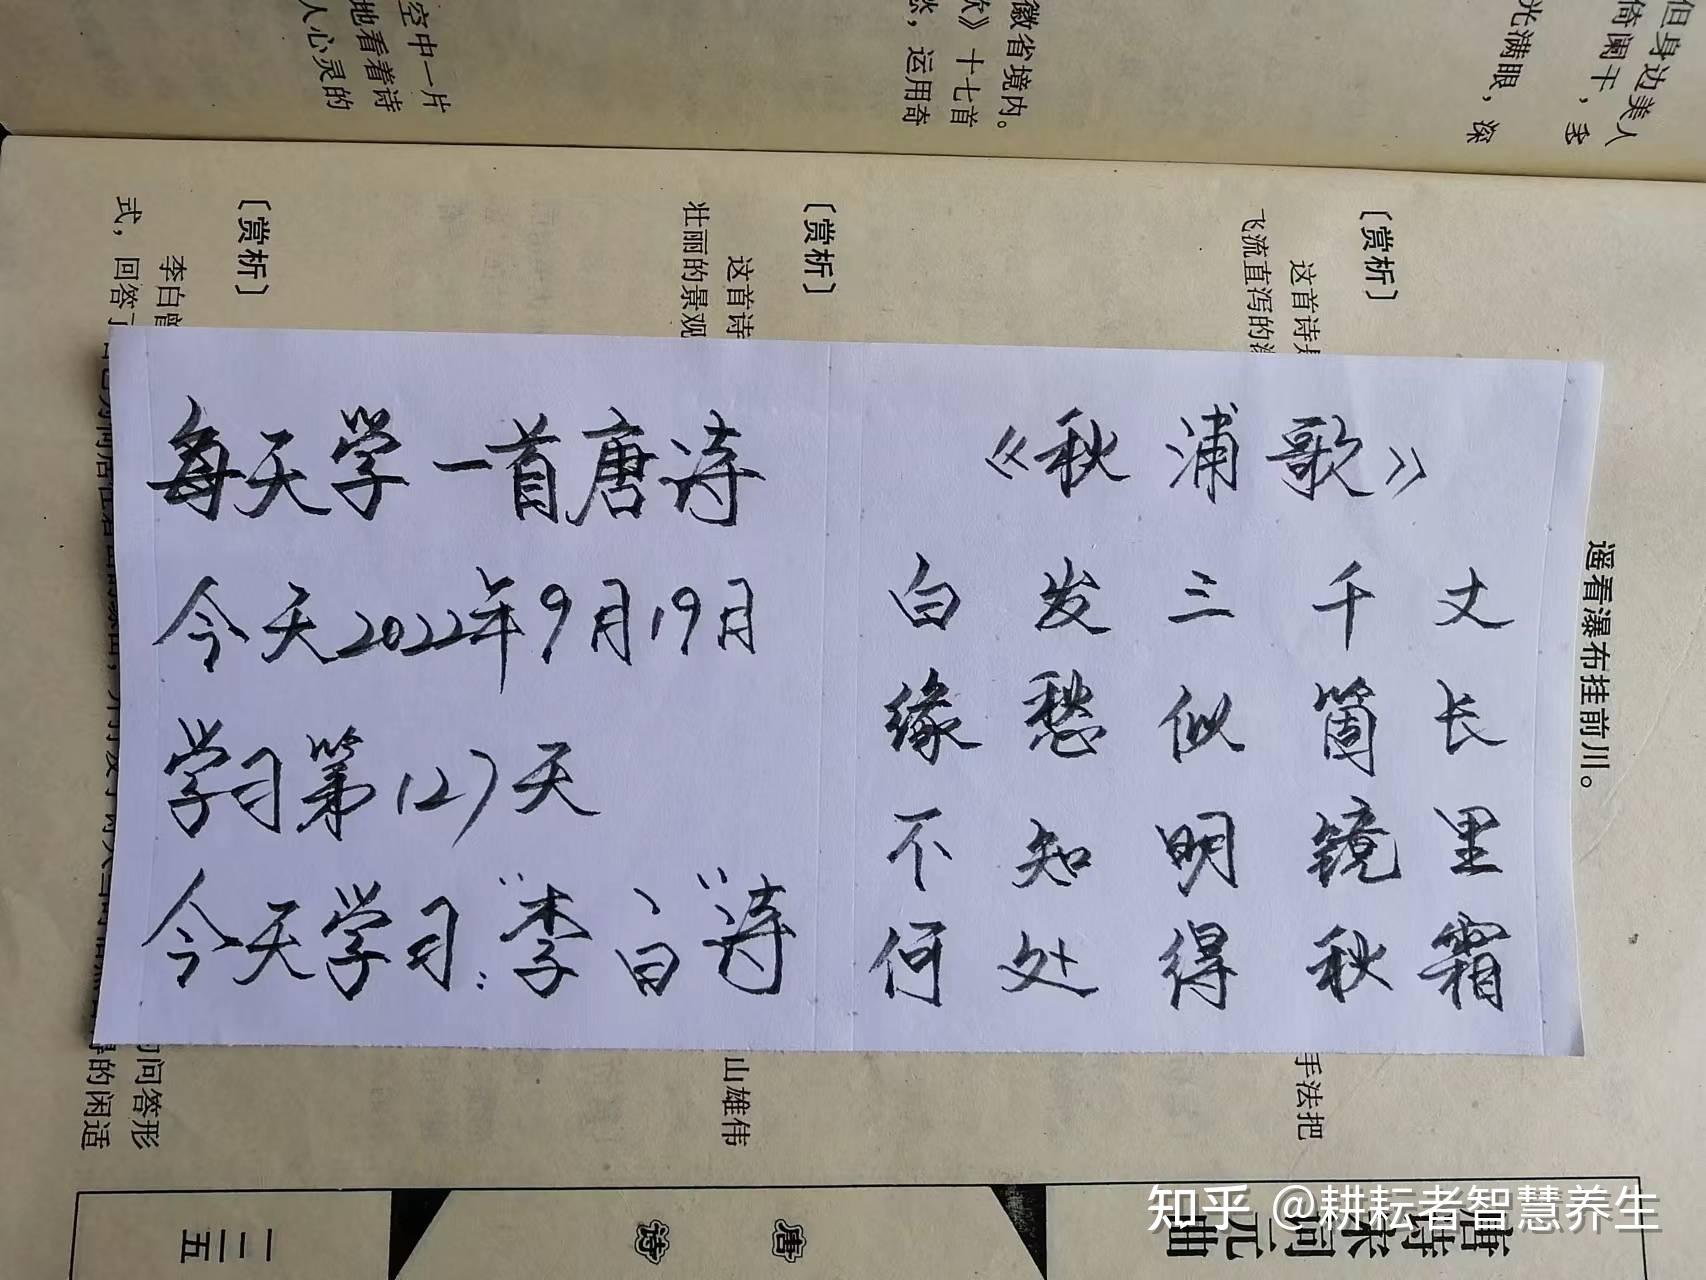 每天学一首唐诗
今天2022年9月19日
学习第127天
今天学习："李白"诗
《秋浦歌》
白发三千丈
缘愁似箇长
不知明镜里
何处得秋霜
但身边美人
倚阑干，
光满眼，深
徽省境内。
》十七首
愁，运用奇
空中一片
地看着诗
人心灵的
遥看瀑布挂前川。
〔赏析〕
这首诗
飞流直泻的
手法把
〔赏析〕
这首诗
壮丽的景观
山雄伟
〔赏析〕
李白曾
问答形
式，回答了
的闲适
唐诗宋词元曲
唐诗
一二五
知乎 @耕耘者智慧养生